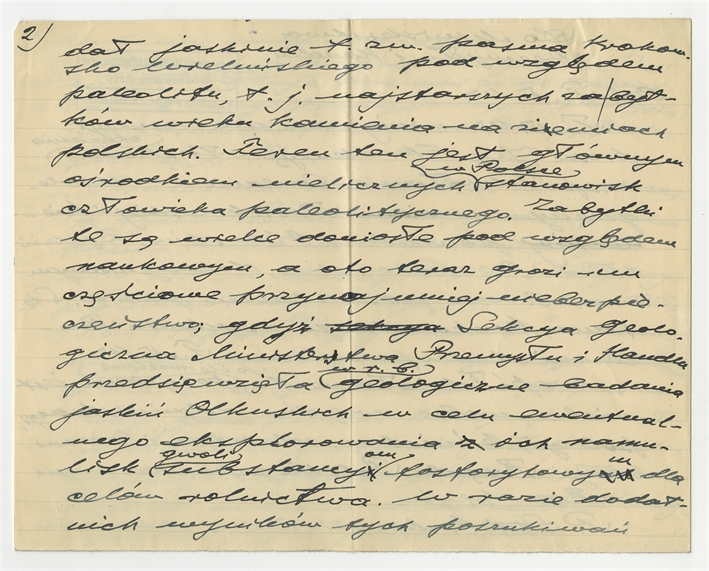 2)
dał jaskinie t. zw. pasma Krakow-
sko Wieluńskiego pod względem
paleolitu, t. j. najstarszych zabyt-
ków wieku kamienia na ziemiach
polskich. Teren ten jest głównym
w Polsce
ośrodkiem nielicznych stanowisk
człowieka paleolitycznego. Zabytki
te są wielce doniosłe pod względem
naukowym, a oto teraz grozi im
częściowe przynajmniej niebezpie-
czeństwo, gdyż Sekcya Geolo-
giczna Ministerstwa Przemysłu i Handlu
w r. b.
przedsięwzięła geologiczne badania
jaskiń Olkuskich w celu ewentual-
nego eksplorowania ich namu-
lisk gwoli substancyom fosforytowym dla
celów rolnictwa. W razie dodat-
nich wyników tych poszukiwań